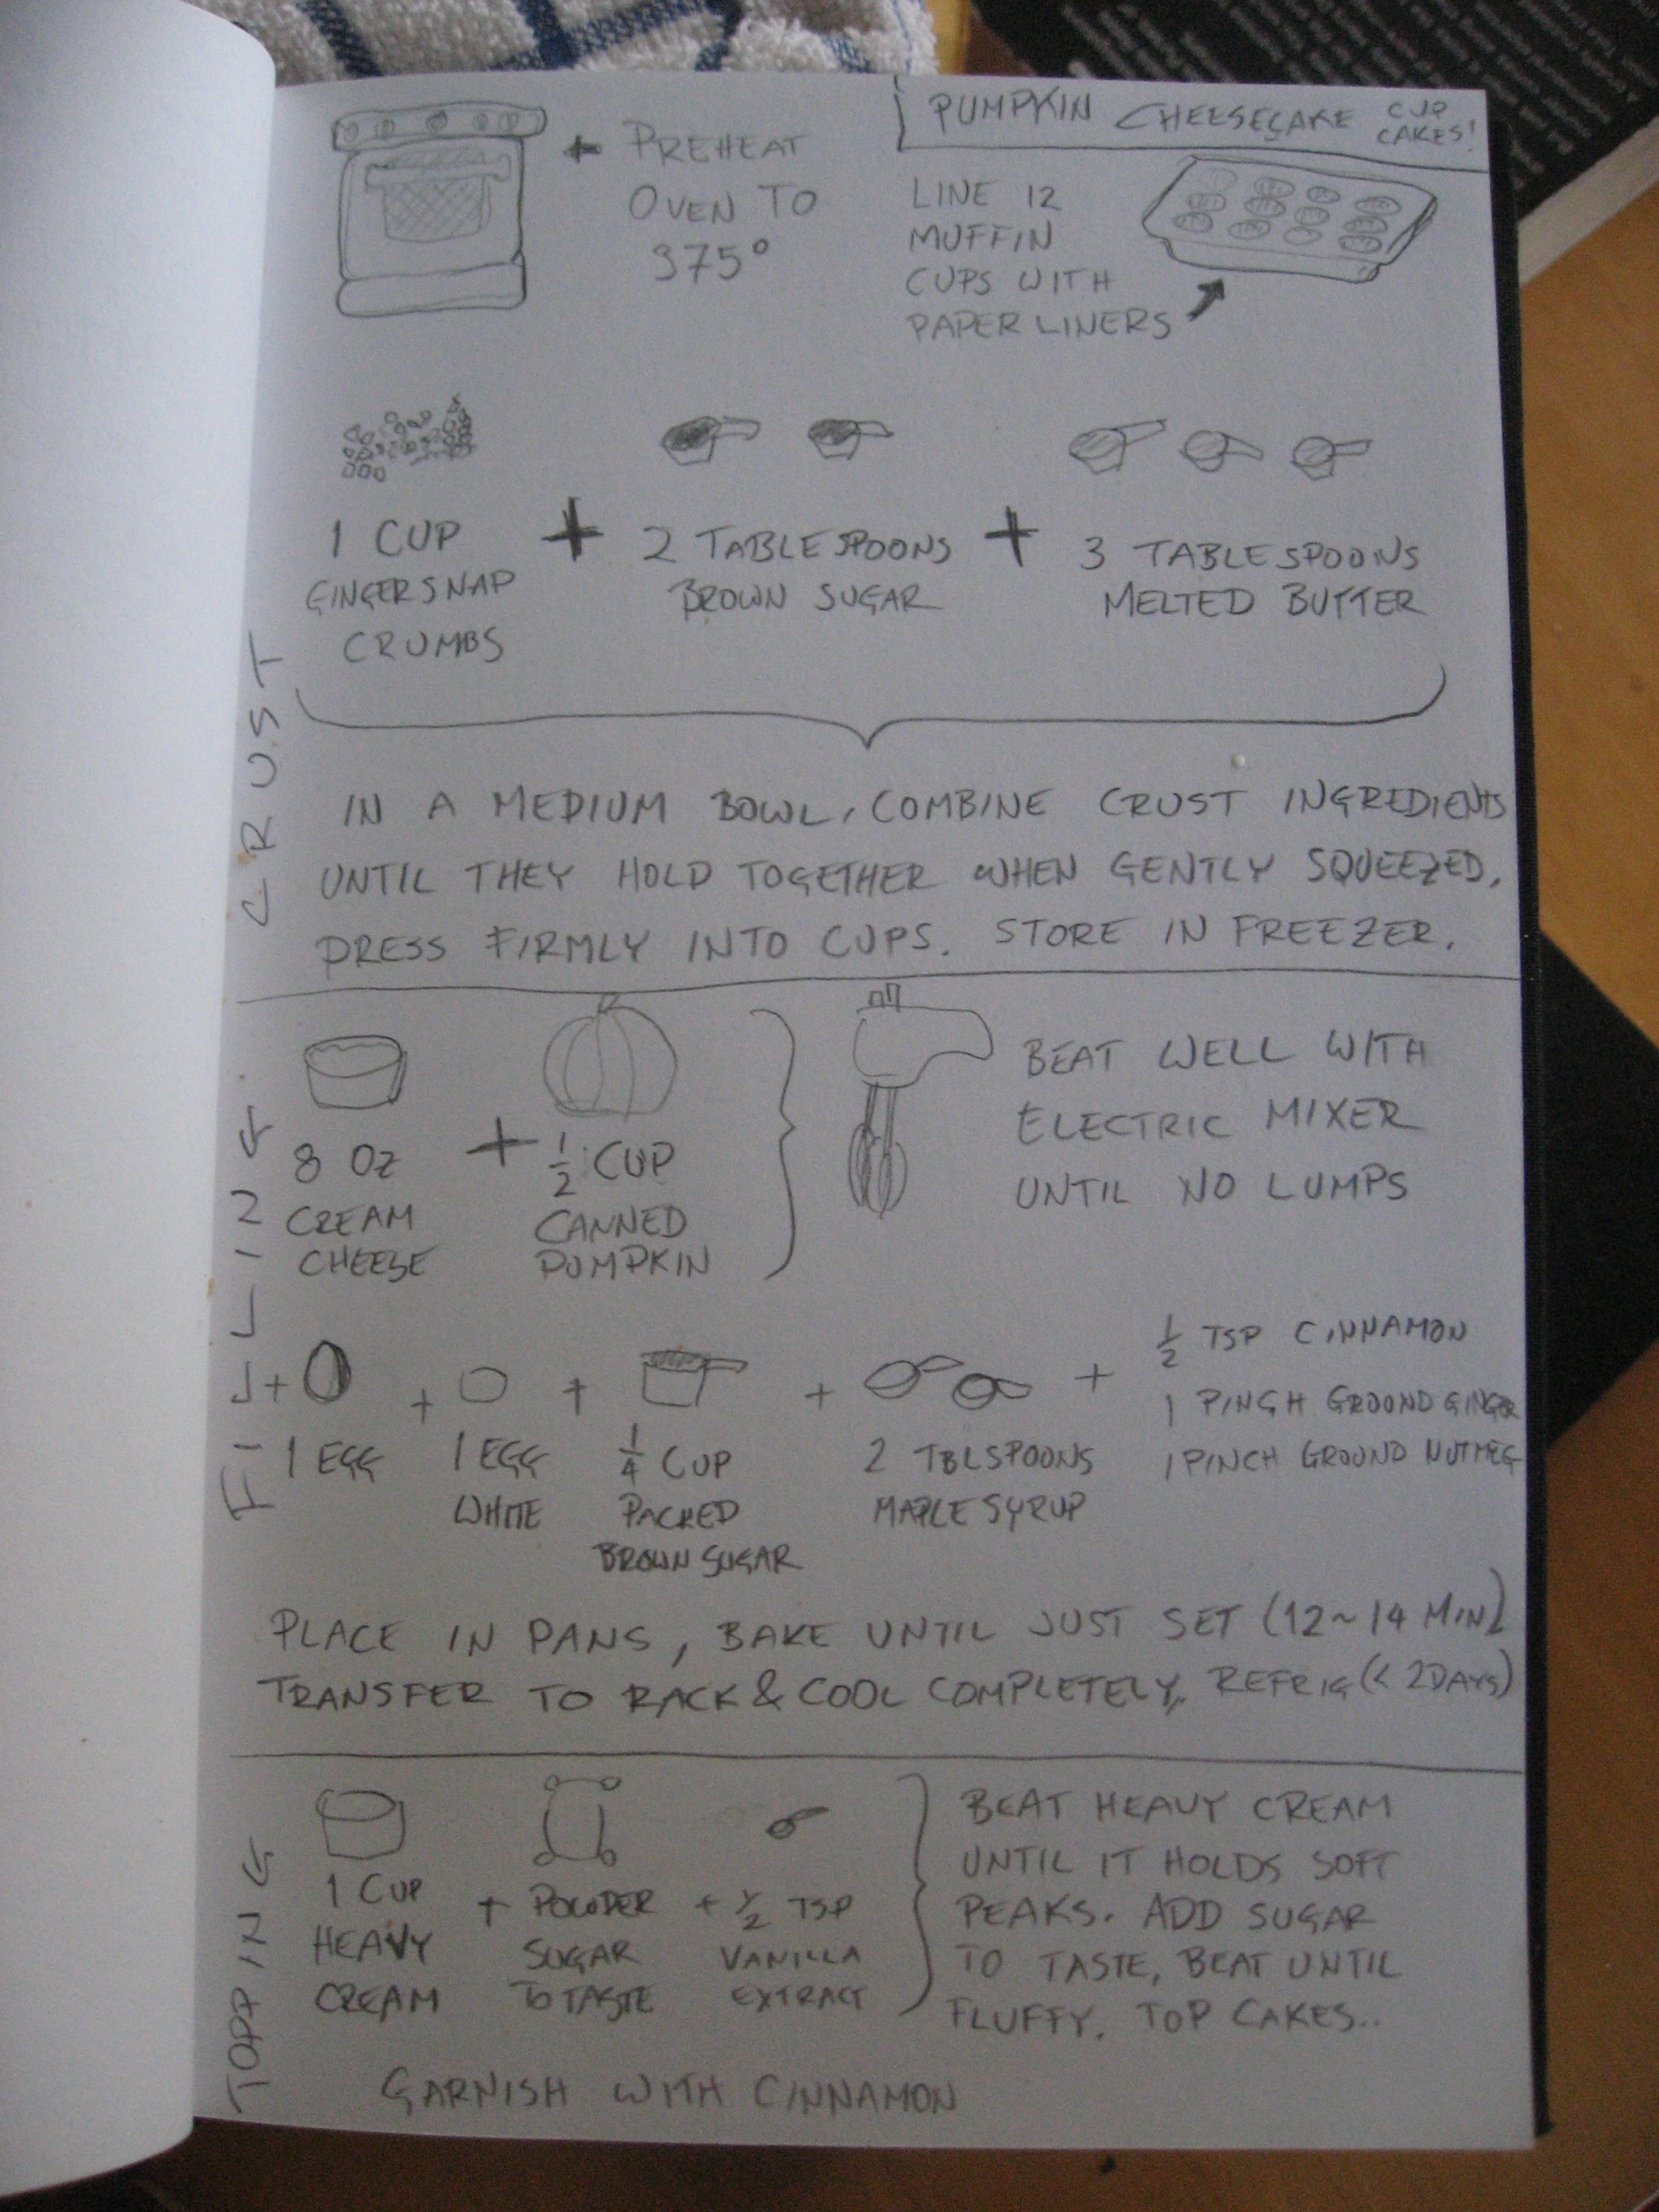 PUMPKIN CHEESECAKE CUP
CAKES!
+ PREHEAT
OVEN TO
375°
LINE 12
MUFFIN
CUPS WITH
PAPER LINERS
CRUST
1 CUP
GINGERSNAP
CRUMBS
+
2 TABLESPOONS
BROWN SUGAR
+
3 TABLESPOONS
MELTED BUTTER
IN A MEDIUM BOWL, COMBINE CRUST INGREDIENTS
UNTIL THEY HOLD TOGETHER WHEN GENTLY SQUEEZED,
PRESS FIRMLY INTO CUPS. STORE IN FREEZER.
FILLING
8 OZ
CREAM
CHEESE
+
1/2 CUP
CANNED
PUMPKIN
BEAT WELL WITH
ELECTRIC MIXER
UNTIL NO LUMPS
+
1 EGG
+
1 EGG
WHITE
+
1/4 CUP
PACKED
BROWN SUGAR
+
2 TBLSPOONS
MAPLE SYRUP
+
1/2 TSP CINNAMON
1 PINCH GROUND GINGER
1 PINCH GROUND NUTMEG
PLACE IN PANS, BAKE UNTIL JUST SET (12~14 MIN)
TRANSFER TO RACK & COOL COMPLETELY, REFRIG (< 2DAYS)
TOPPING
1 CUP
HEAVY
CREAM
+ POWDER
SUGAR
TO TASTE
+ 1/2 TSP
VANILLA
EXTRACT
BEAT HEAVY CREAM
UNTIL IT HOLDS SOFT
PEAKS. ADD SUGAR
TO TASTE, BEAT UNTIL
FLUFFY. TOP CAKES..
GARNISH WITH CINNAMON